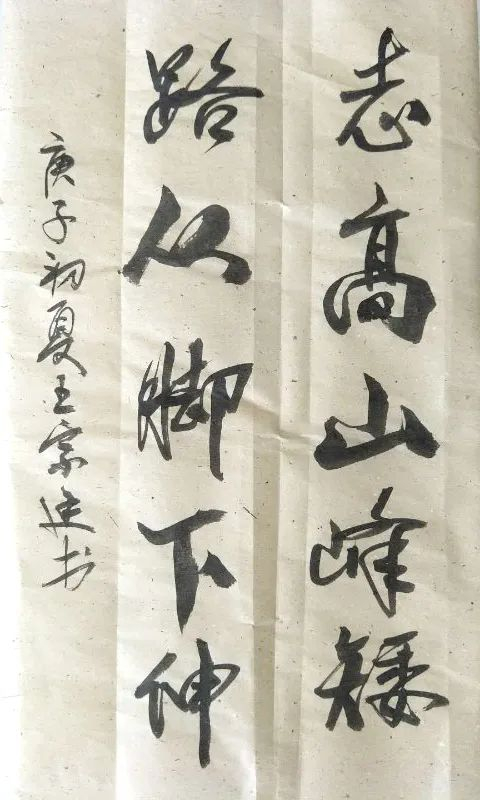 志高山峰矮
路从脚下伸
庚子初夏王宗廷书